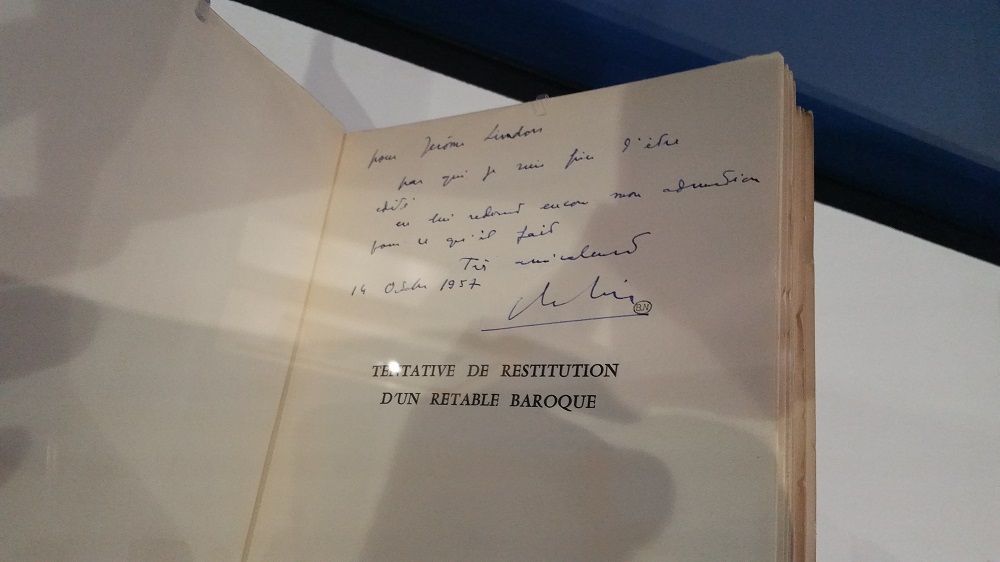 pour Jérôme Lindon
par qui je suis fier d'être
édité
en lui redisant encore mon admiration
pour ce qu'il fait
Très amicalement
14 Octobre 1957
BN
TENTATIVE DE RESTITUTION
D'UN RETABLE BAROQUE